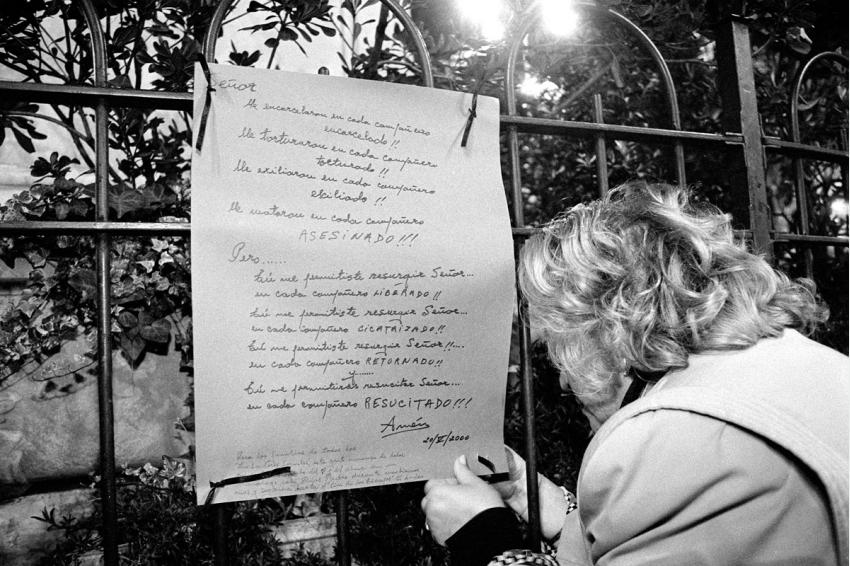 Señor
Me encarcelaron en cada compañero
encarcelado!!
Me torturaron en cada compañero
torturado!!
Me exiliaron en cada compañero
exiliado!!
Me mataron en cada compañero
ASESINADO!!!
Pero......
tú me permitiste resurgir Señor...
en cada compañero LIBERADO!!
tú me permitiste resurgir Señor...
en cada compañero CICATRIZADO!!
tú me permitiste resurgir Señor!!....
en cada compañero RETORNADO!!
y......
tú me permitirás resucitar Señor...
en cada compañero RESUCITADO!!!
Amén
20/VI/2000
Para los familiares de todos los